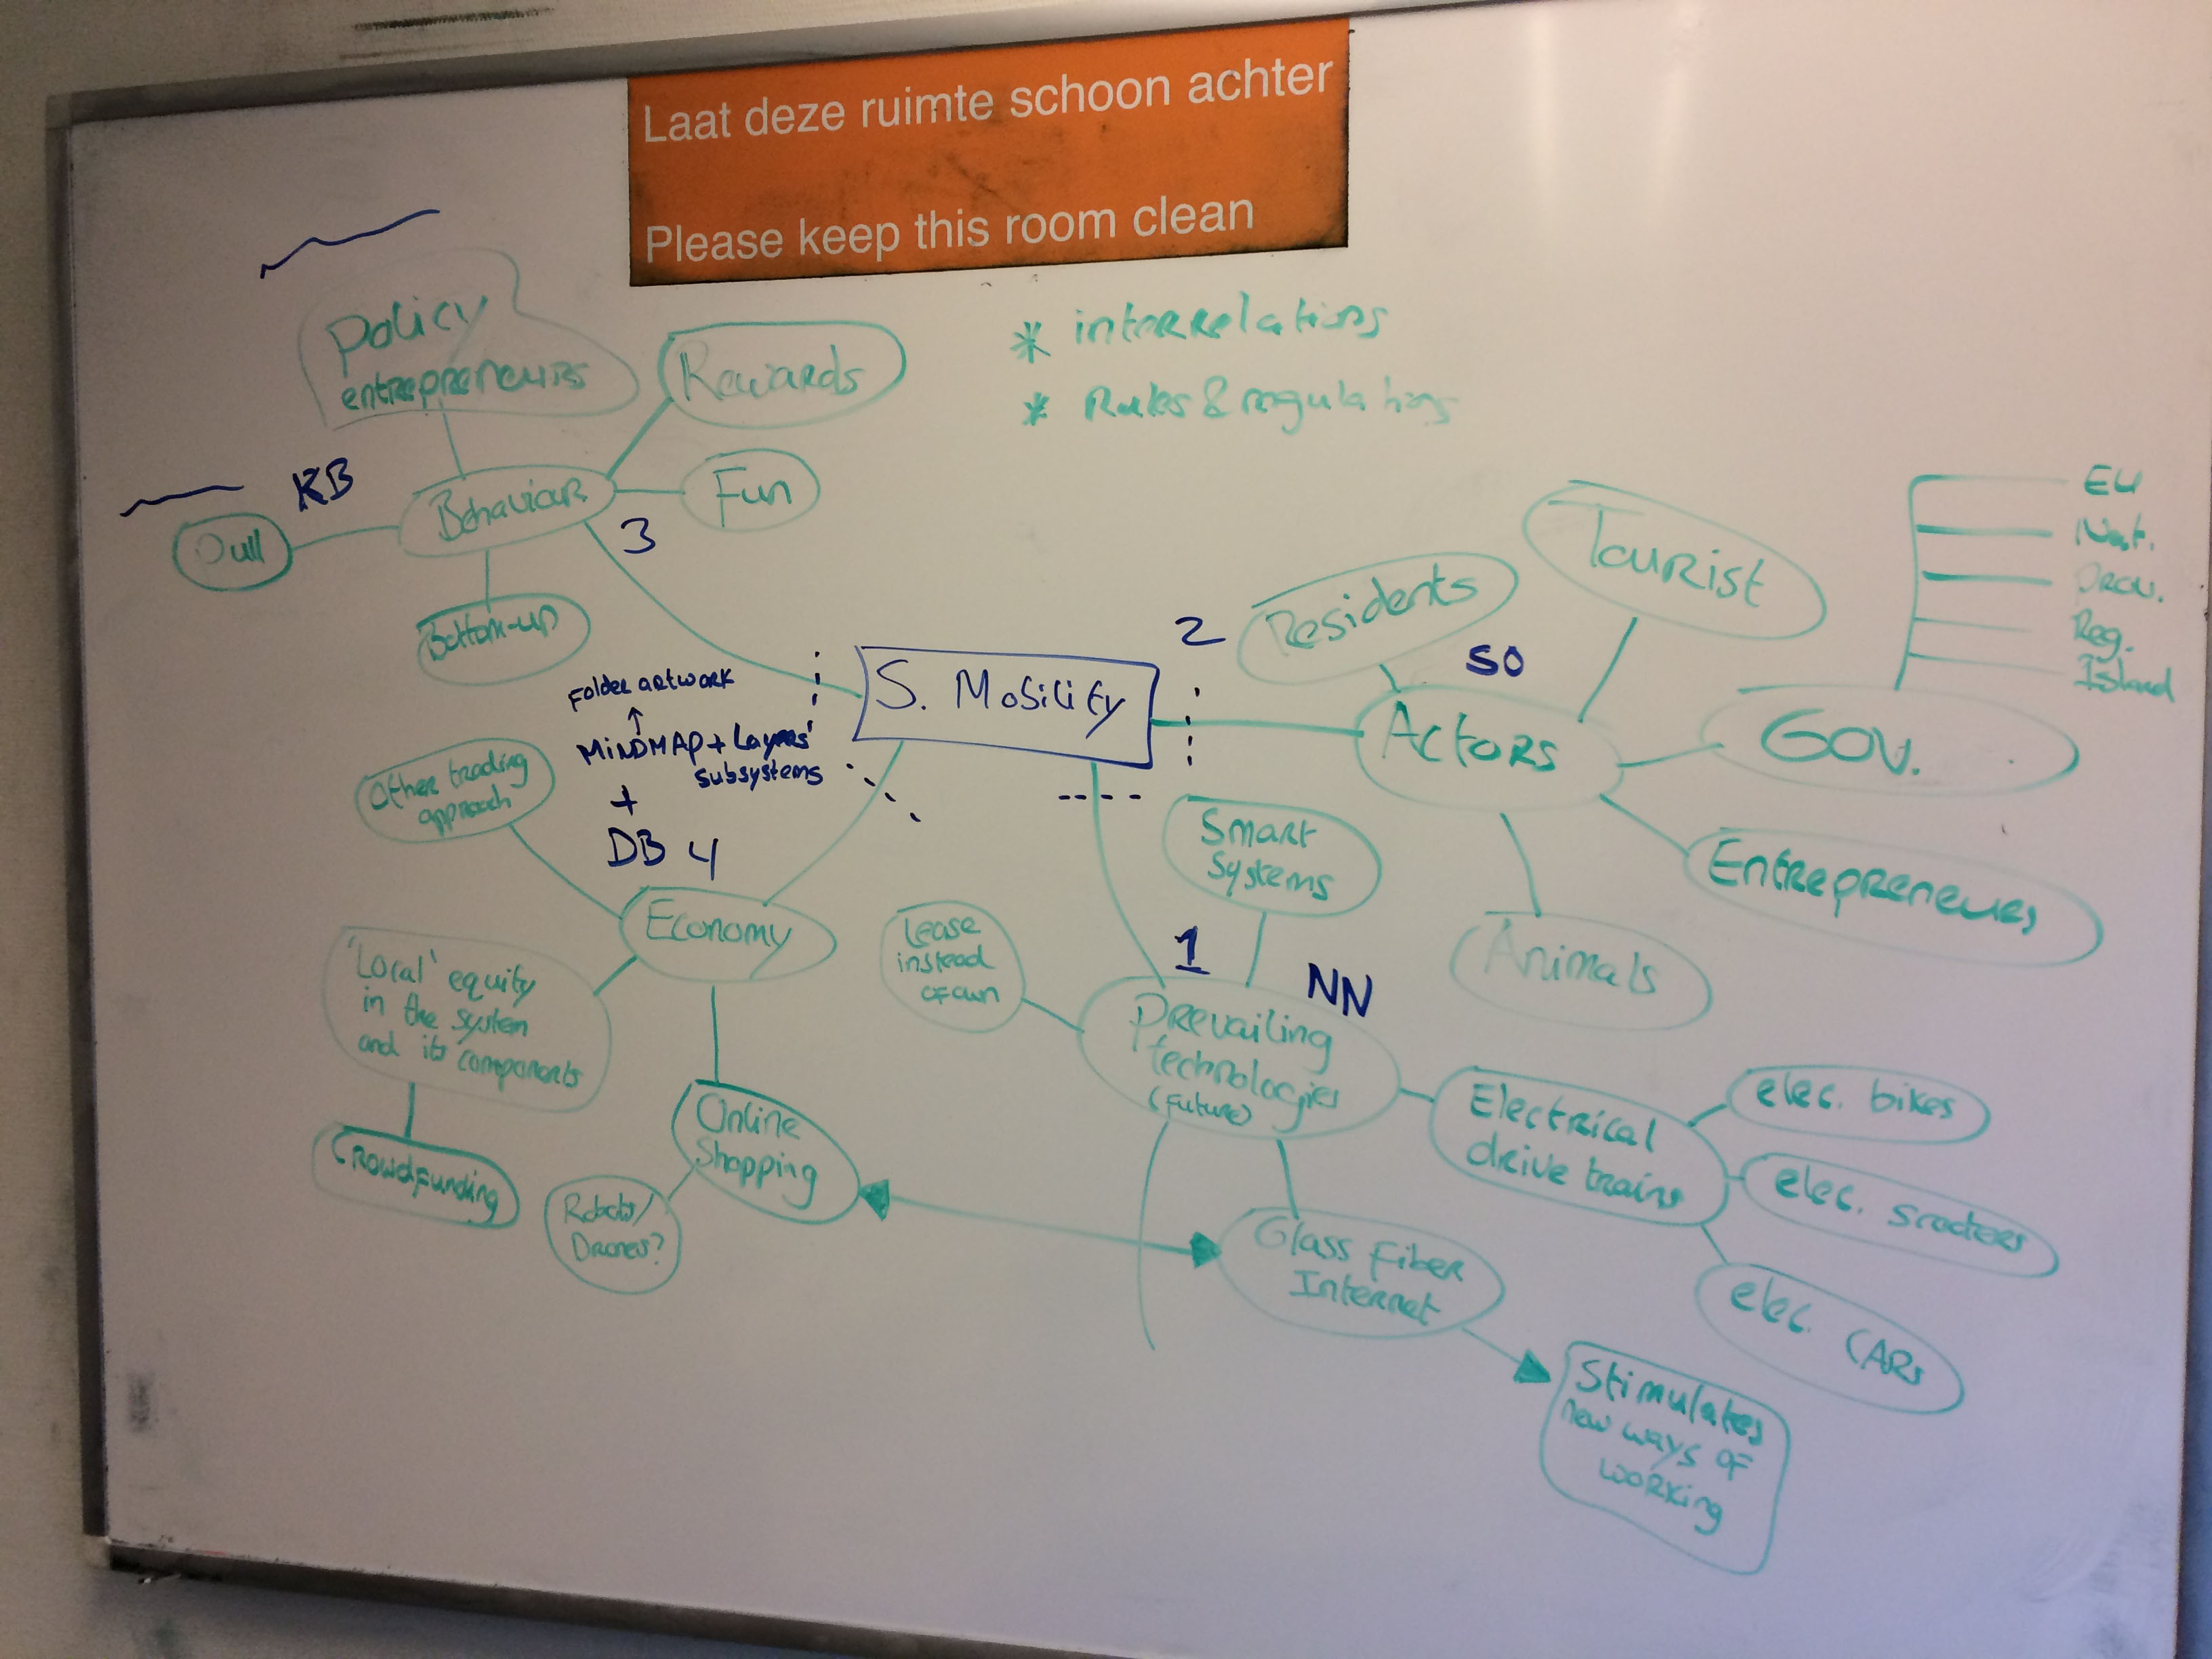 Laat deze ruimte schoon achter
Please keep this room clean
* interrelations
* Rules & regulations
Policy
entrepreneurs
Rewards
Fun
KB
Behaviour
3
Bottom-up
Folder artwork
MINDMAP + Layers'
subsystems
+
DB 4
S. Mobility
2
Residents
SO
Tourist
Actors
Gov.
EU
Nat.
Prov.
Reg.
Island
Entrepreneurs
Animals
Other trading
approach
Economy
'Local' equity
in the system
and its components
Crowdfunding
Online
Shopping
Robots/
Drones?
Smart
Systems
Lease
instead
of own
1
NN
Prevailing
technologies
(future)
Electrical
drive trains
elec. bikes
elec. scooters
elec. CARs
Glass Fiber
Internet
Stimulates
new ways of
working